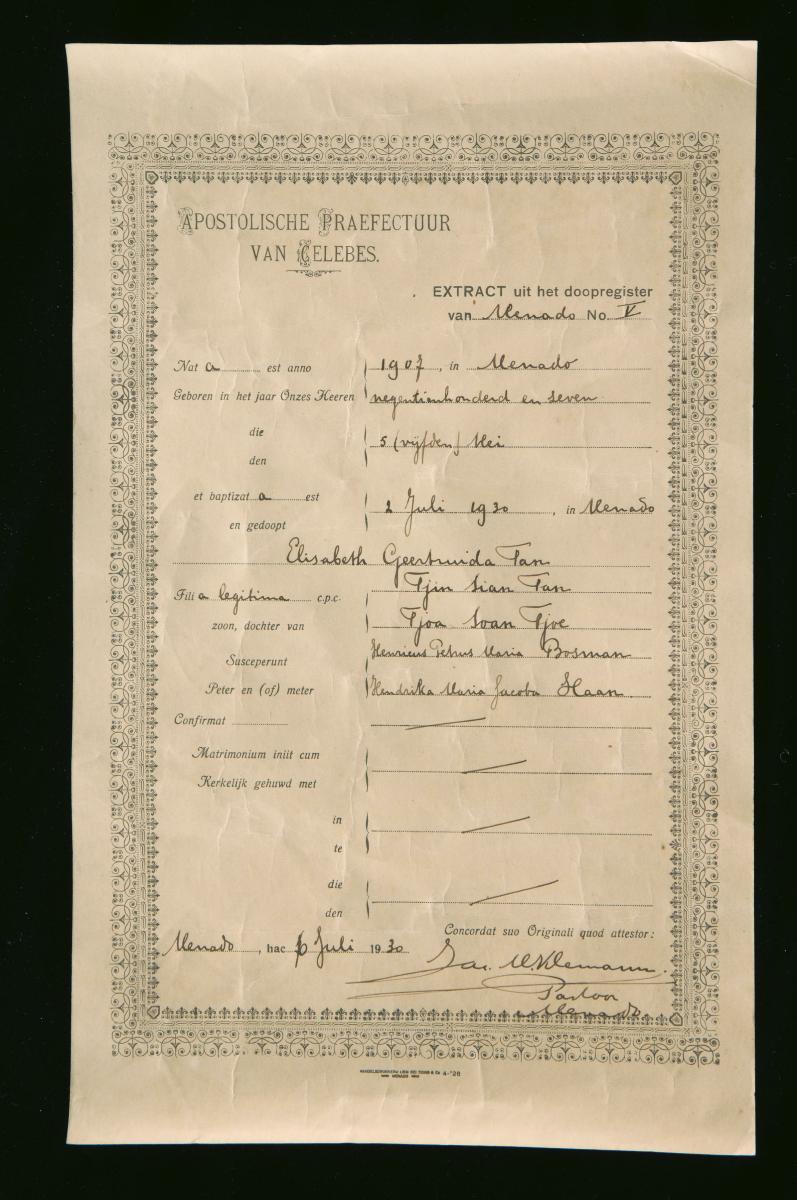 APOSTOLISCHE PRAEFECTUUR
VAN CELEBES.
EXTRACT uit het doopregister
van Menado No. V
Nat a est anno 1907, in Menado
Geboren in het jaar Onzes Heeren negentienhonderd en seven
die 5 (vijfden) Mei
den
et baptizat a est 2 Juli 1930, in Menado
en gedoopt
Elisabeth Geertruida Tan
Tjin Sian Tan
Fili a legitima c.p.c.
zoon, dochter van Tjoa Soan Tjoe
Susceperunt Henricus Petrus Maria Bosman
Peter en (of) meter Hendrika Maria Jacoba Haan
Confirmat
Matrimonium iniit cum
Kerkelijk gehuwd met
in
te
die
den
Concordat suo Originali quod attestor:
Menado, hac 6 Juli 1930
Jac.
Pastoor
Menado
4-'28